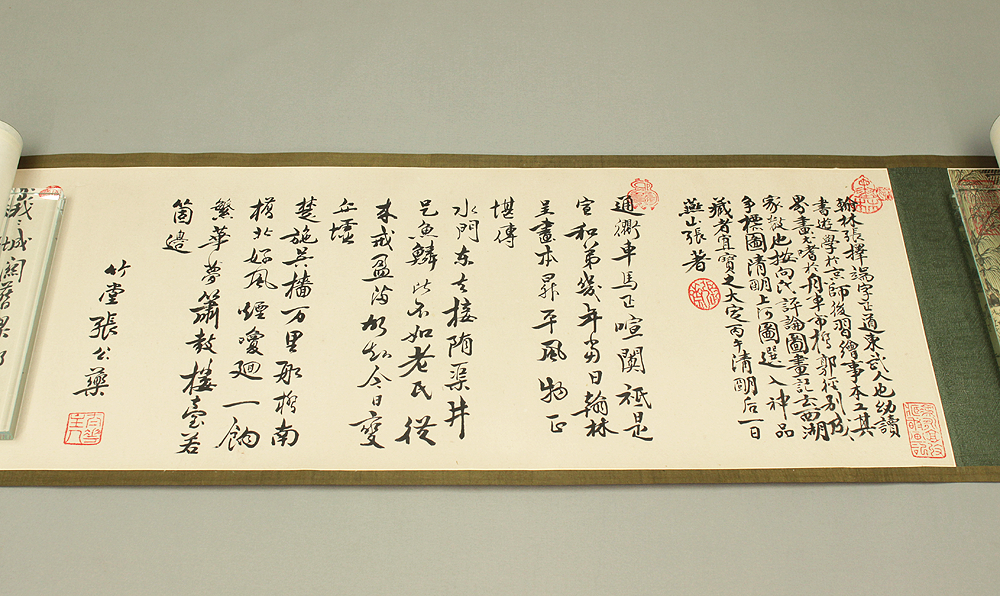 翰林張擇端字正道東武人也幼讀
書遊學於京師後習繪事本工其
界畫尤嗜於舟車市橋郭徑別成
家數也按向氏評論圖畫記云西湖
爭標圖清明上河圖選入神品
藏者宜寶之大定丙午清明后一日
燕山張著
通衢車馬正喧闐祗是
宣和第幾年當日翰林
呈畫本昇平風物正
堪傳
水門東去接隋渠井
邑魚鱗此不如老氏從
來戒盈滿故知今日變
丘墟
楚柂吳檣萬里舡橋南
橋北好風煙喚廻一餉
繁華夢簫鼓樓臺若
箇邊
竹堂張公藥
城闕舊梁